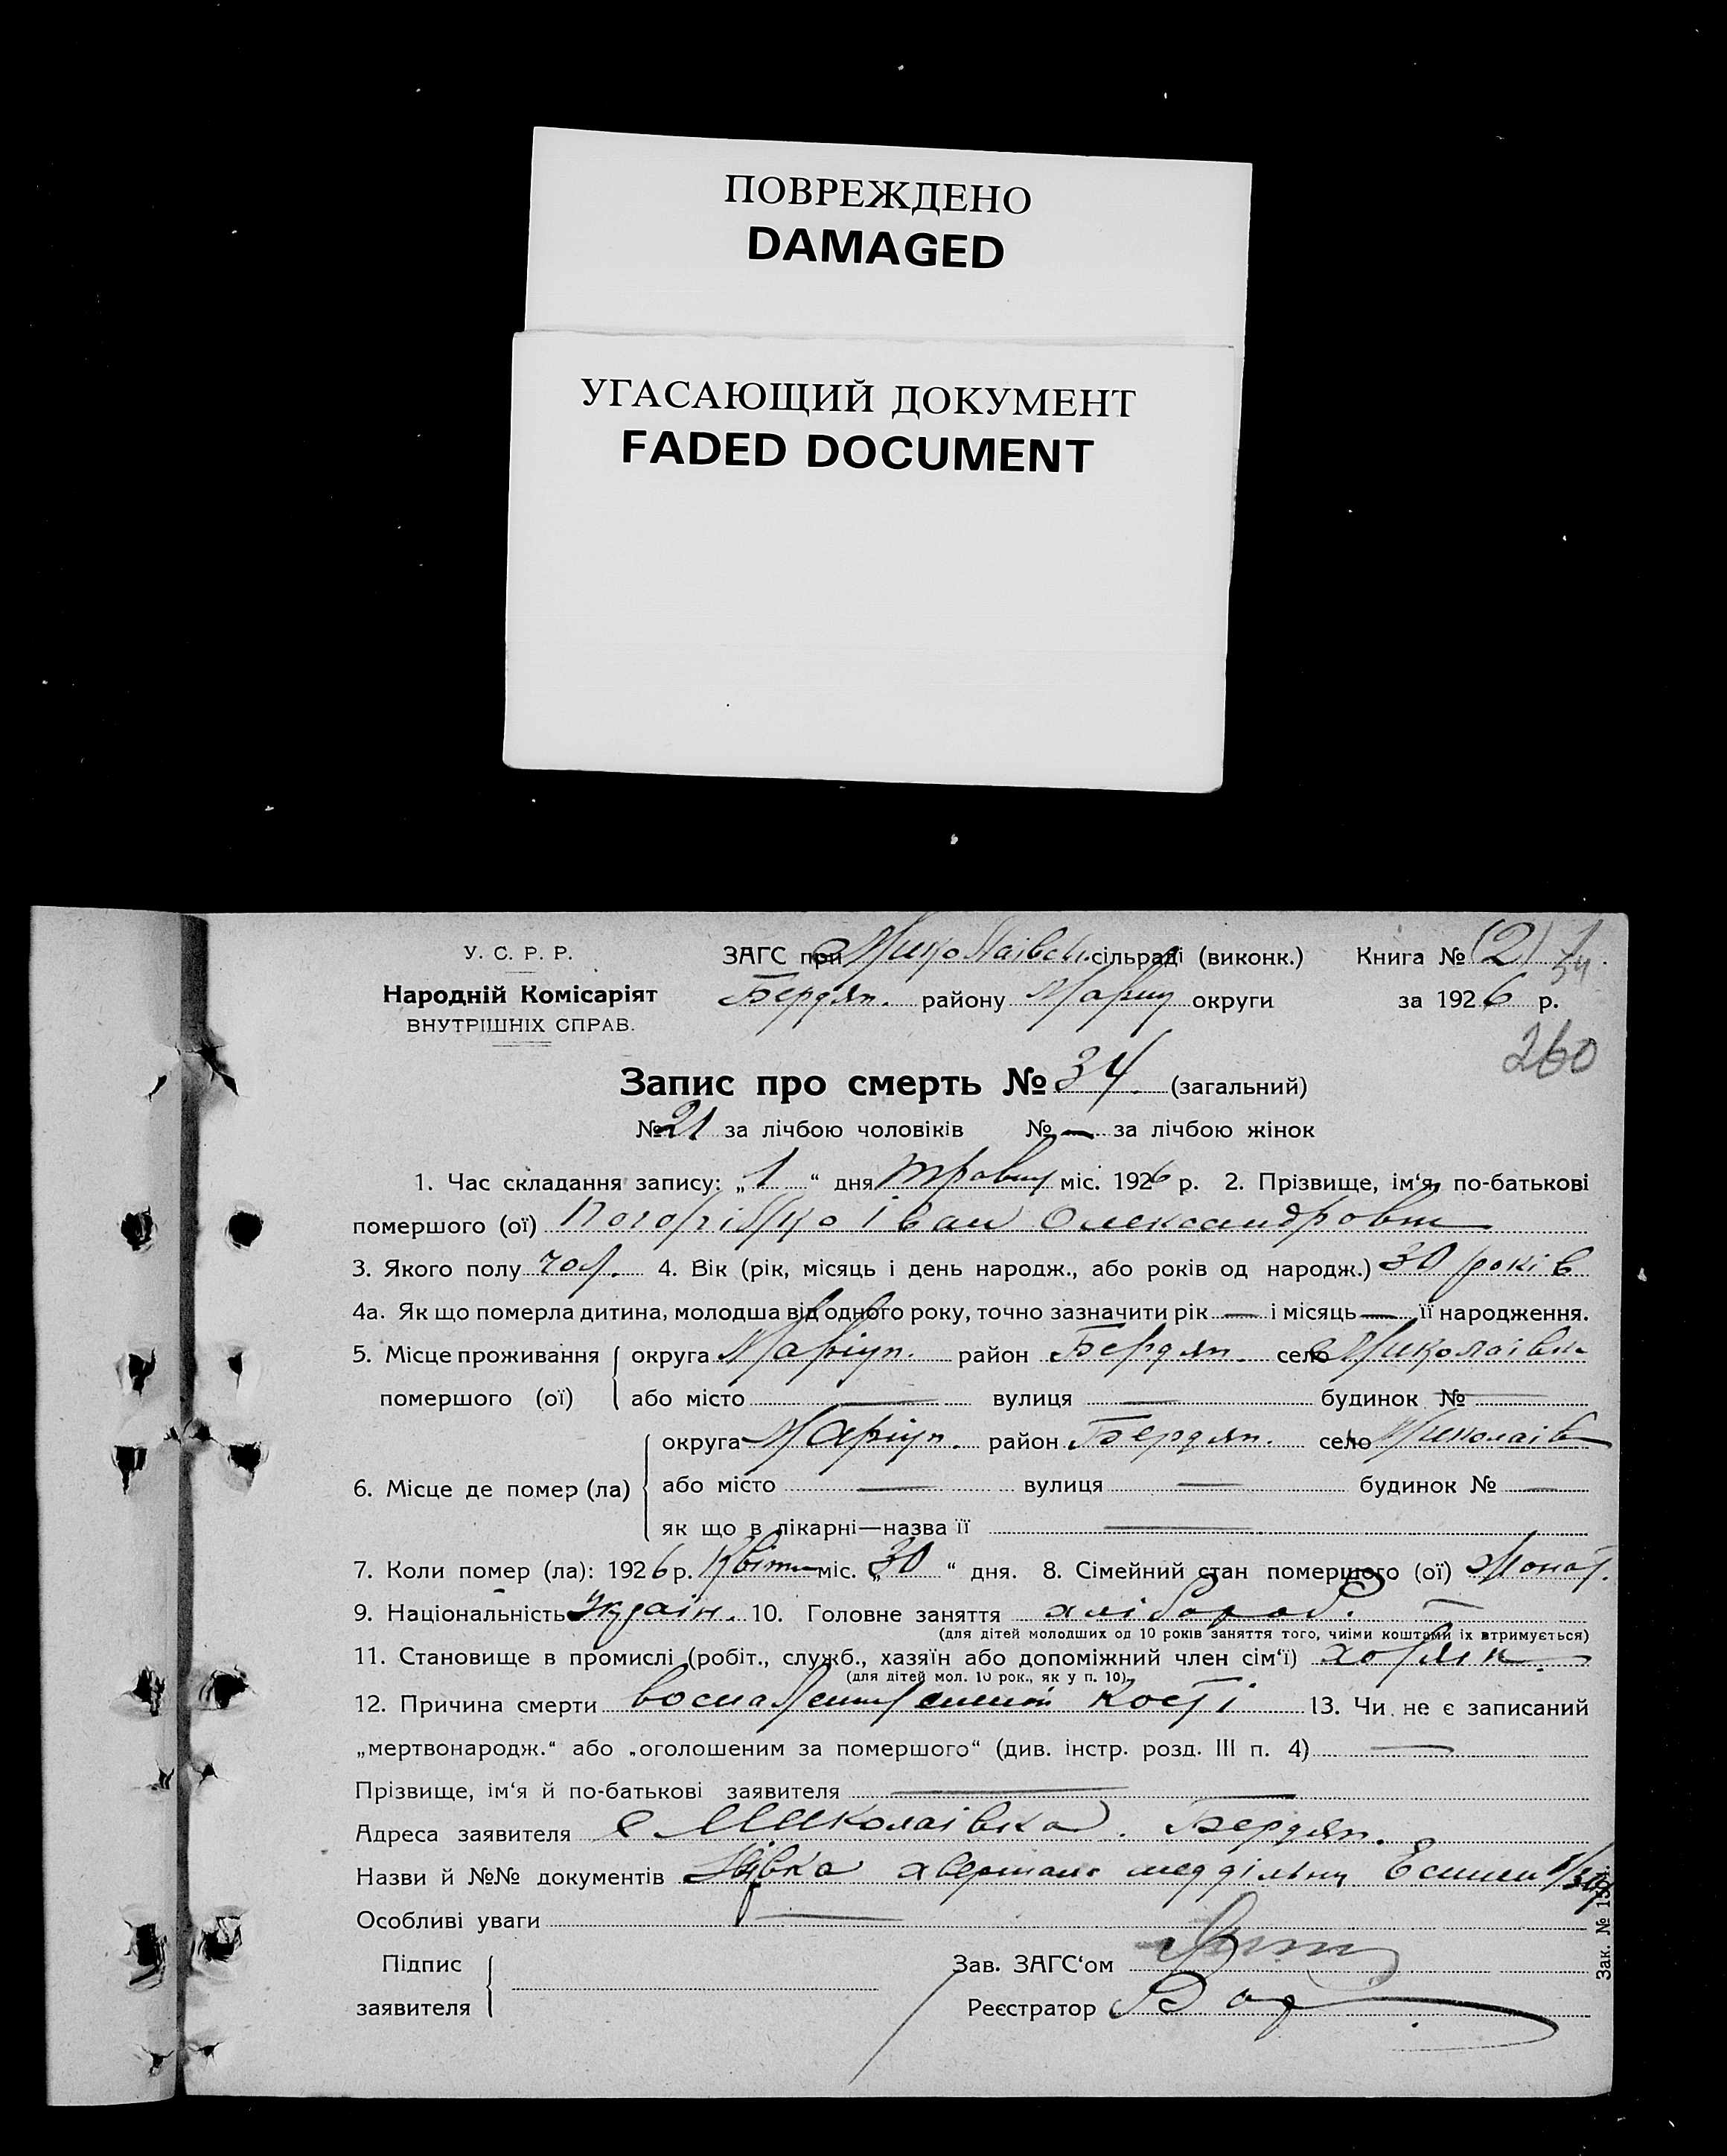 ПОВРЕЖДЕНО
DAMAGED
УГАСАЮЩИЙ ДОКУМЕНТ
FADED DOCUMENT
У. С. Р. Р.
Народній Комісаріят
ВНУТРІШНІХ СПРАВ.
ЗАГС при Миколаівск. сільраді (виконк.) Книга № (2)
Бердян. району Маріу округи за 1926 р.
260
Запис про смерть № 34. (загальний)
№ 21 за лічбою чоловіків № — за лічбою жінок
1. Час складання запису: „1“ дня травня міс. 1926 р. 2. Прізвище, ім‘я, по-батькові
помершого (ої) Погрілко Іван Олександрович
3. Якого полу чол. 4. Вік (рік, місяць і день народж., або років од народж.) 30 років
4а. Як що померла дитина, молодша від одного року, точно зазначити рік — і місяць — її народження.
5. Місце проживання помершого (ої) округа Маріуп. район Бердян. село Миколаівка
або місто — вулиця — будинок № —
6. Місце де помер (ла) округа Маріуп. район Бердян. село Миколаів
або місто — вулиця — будинок № —
як що в лікарні—назва її —
7. Коли помер (ла): 1926 р. Квітня міс. „30“ дня. 8. Сімейний стан помершого (ої) жонат.
9. Національність Україн. 10. Головне заняття хлібороб. —
(для дітей молодших од 10 років заняття того, чиїми коштами їх втримується)
11. Становище в промислі (робіт., служб., хазяїн або допоміжний член сім‘ї)
(для дітей мол. 10 рок., як у п. 10)
12. Причина смерти кості 13. Чи не є записаний
„мертвонародж.“ або „оголошеним за помершого“ (див. інстр. розд. III п. 4) —
Прізвище, ім‘я й по-батькові заявителя —
Адреса заявителя с Миколаівка. Бердян.
Назви й №№ документів
Особливі уваги —
Підпис заявителя
Зав. ЗАГС‘ом
Реєстратор
Зак. №